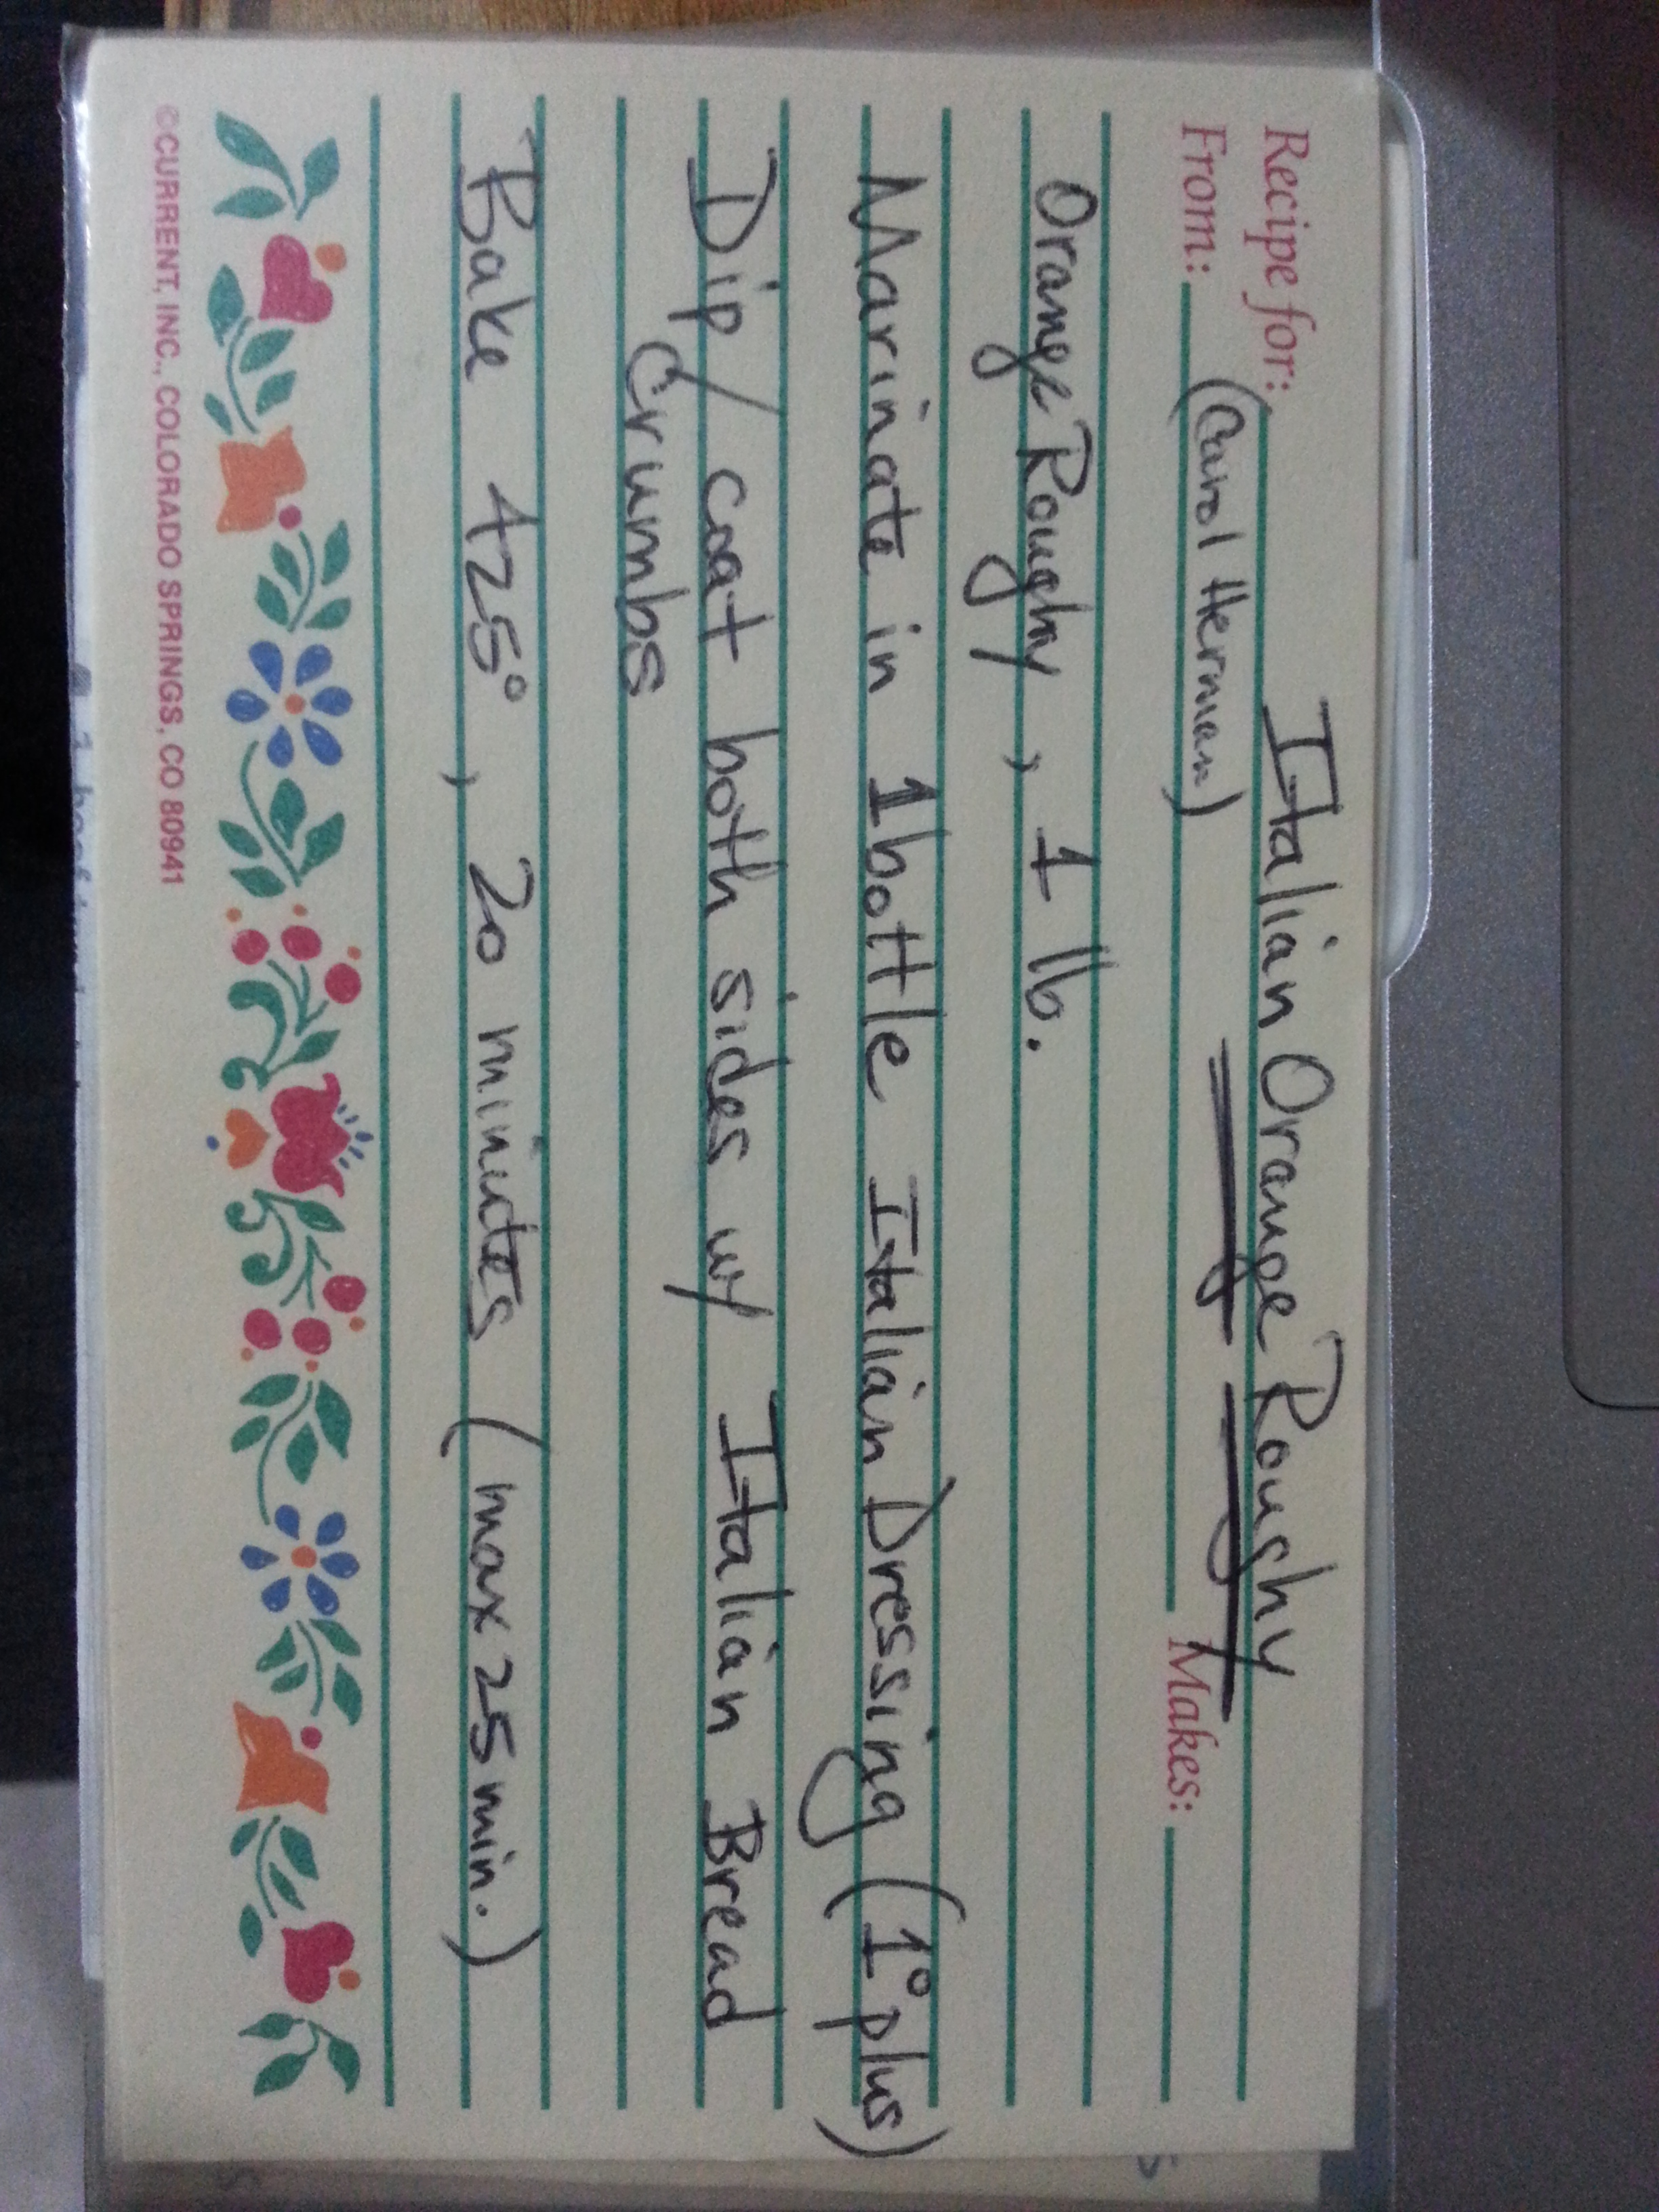 Recipe for: Italian Orange Roughy
From: (Carol Herman) Makes:
Orange Roughy, 1 lb.
Marinate in 1 bottle Italian Dressing (1° plus)
Dip/coat both sides w/ Italian Bread
Crumbs
Bake 425°, 20 minutes (max 25 min.)
©CURRENT, INC., COLORADO SPRINGS, CO 80941